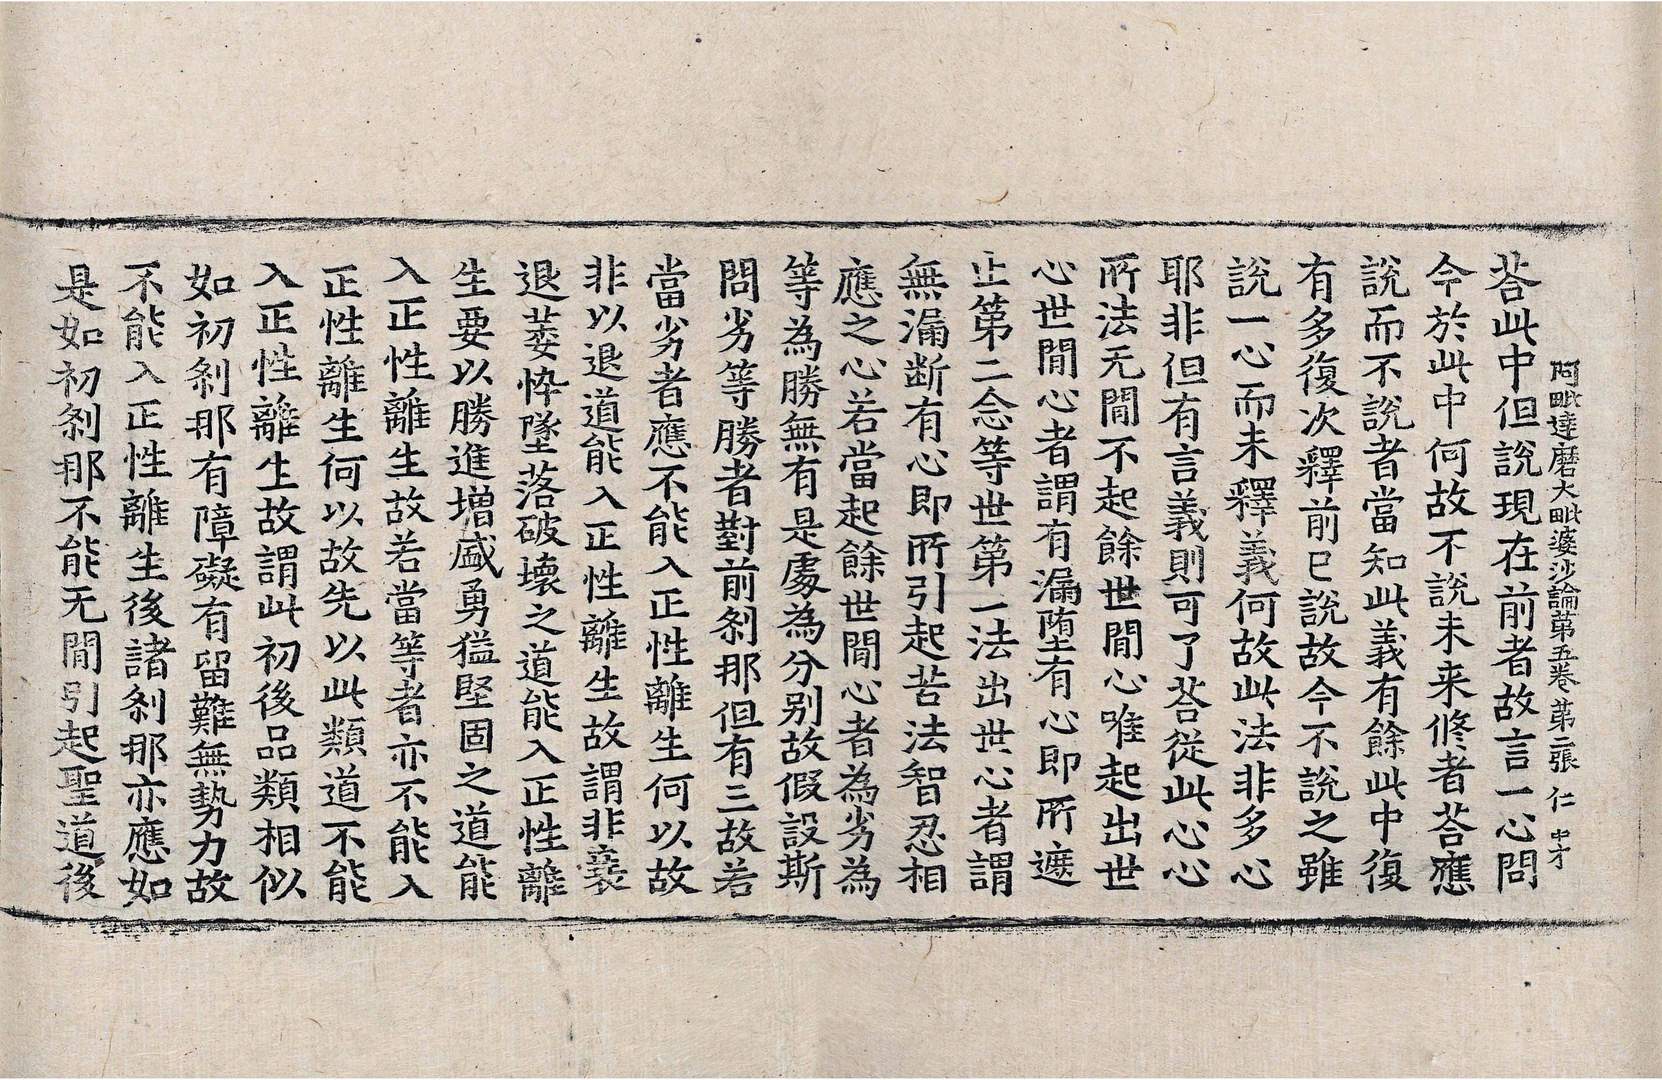 阿毗達磨大毗婆沙論第五卷 第二張 仁 中才
荅此中但說現在前者故言一心問
今於此中何故不說未来修者荅應
說而不說者當知此義有餘此中復
有多復次釋前已說故今不說之雖
說一心而未釋義何故此法非多心
耶非但有言義則可了荅從此心心
所法无間不起餘世間心唯起出世
心世間心者謂有漏堕有心即所遮
止第二念等世第一法出世心者謂
無漏断有心即所引起苦法智忍相
應之心若當起餘世間心者為劣為
等為勝無有是處為分别故假設斯
問劣等勝者對前剎那但有三故若
當劣者應不能入正性離生何以故
非以退道能入正性離生故謂非嚢
退萎忰墜落破壞之道能入正性離
生要以勝進增盛勇猛堅固之道能
入正性離生故若當等者亦不能入
正性離生何以故先以此類道不能
入正性離生故謂此初後品類相似
如初剎那有障礙有留難無勢力故
不能入正性離生後諸剎那亦應如
是如初剎那不能无間引起聖道後